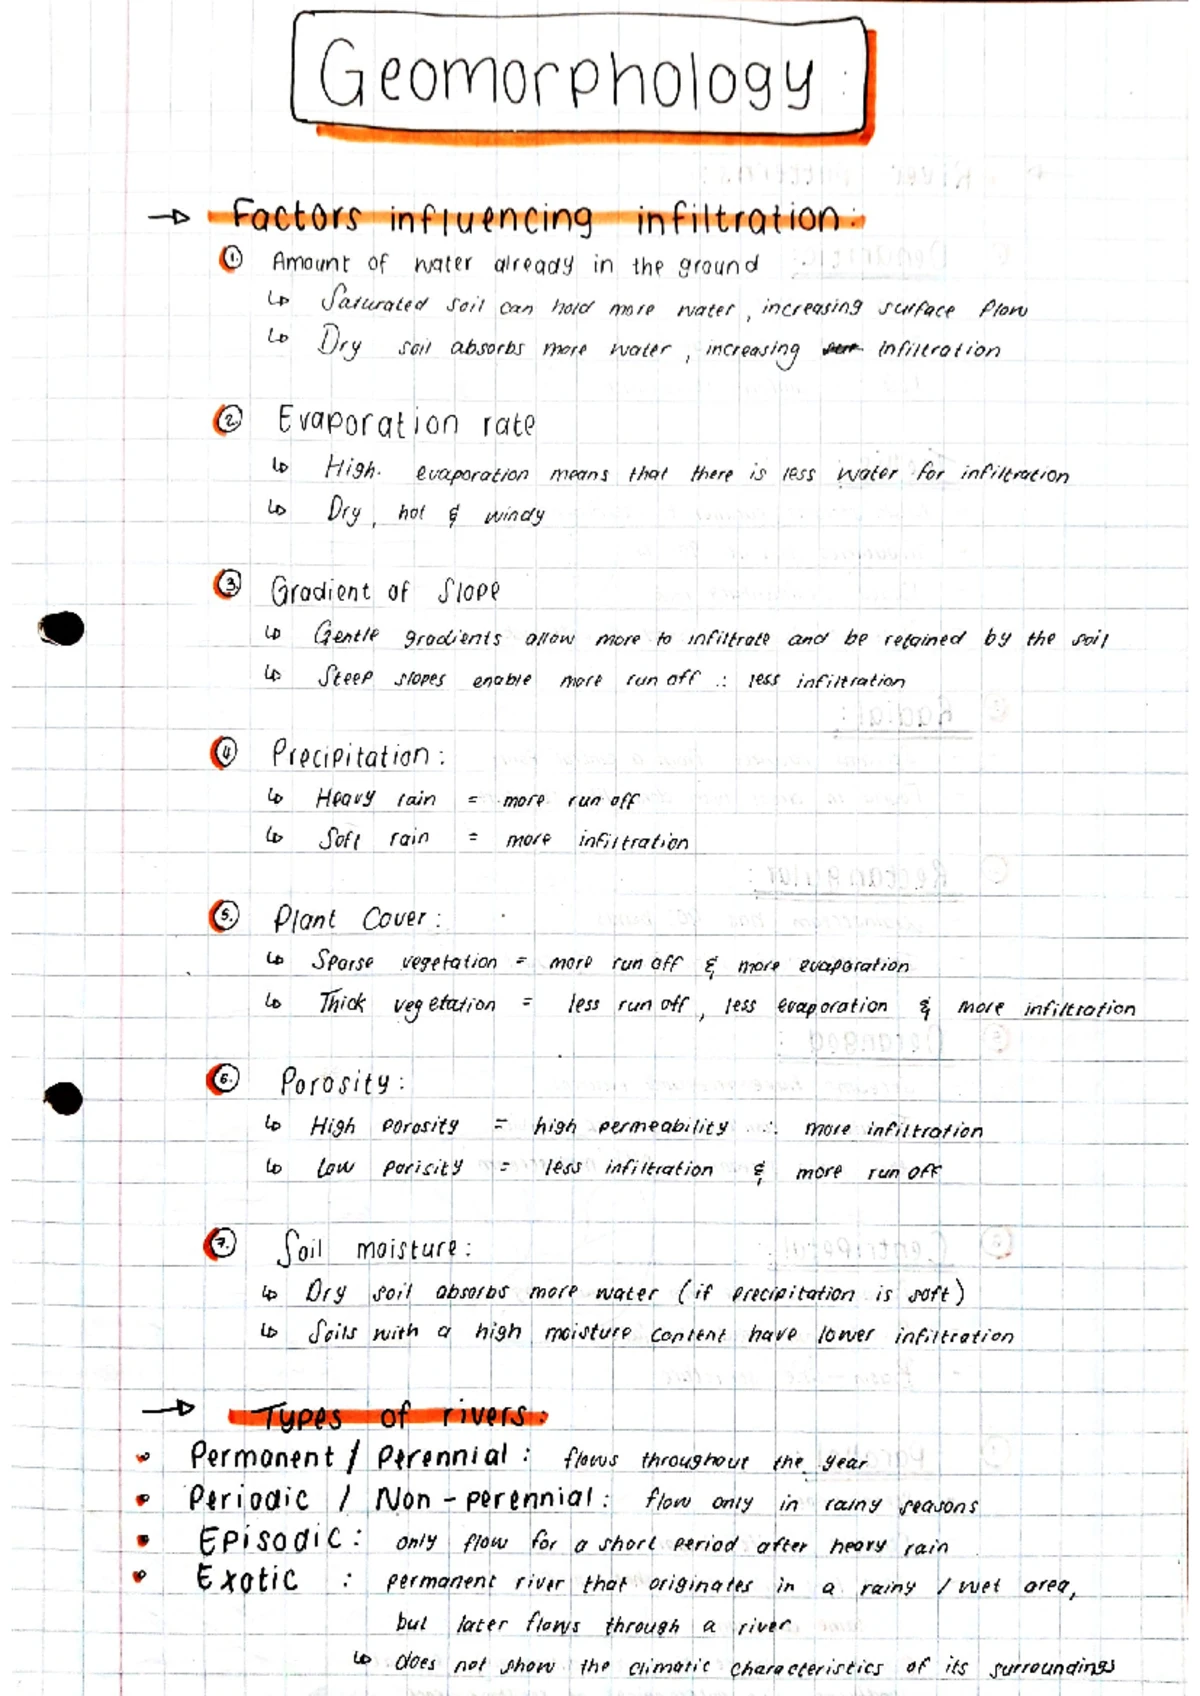 Geomorphology:
→ Factors influencing infiltration:
1. Amount of water already in the ground
↳ Saturated soil can hold more water, increasing surface flow
↳ Dry soil absorbs more water, increasing infiltration
2. Evaporation rate
↳ High evaporation means that there is less water for infiltration
↳ Dry, hot & windy
3. Gradient of slope
↳ Gentle gradients allow more to infiltrate and be retained by the soil
↳ Steep slopes enable more run off ∴ less infiltration
4. Precipitation:
↳ Heavy rain = more run off
↳ Soft rain = more infiltration
5. Plant Cover:
↳ Sparse vegetation = more run off & more evaporation
↳ Thick vegetation = less run off, less evaporation & more infiltration
6. Porosity:
↳ High porosity = high permeability ∴ more infiltration
↳ Low porisity = less infiltration & more run off
7. Soil moisture:
↳ Dry soil absorbs more water (if precipitation is soft)
↳ Soils with a high moisture content have lower infiltration
→ Types of rivers:
• Permanent / Perennial: flows throughout the year
• Periodic / Non-perennial: flow only in rainy seasons
• Episodic: only flow for a short period after heavy rain
• Exotic: permanent river that originates in a rainy / wet area,
but later flows through a river
↳ does not show the climatic characteristics of its surroundings